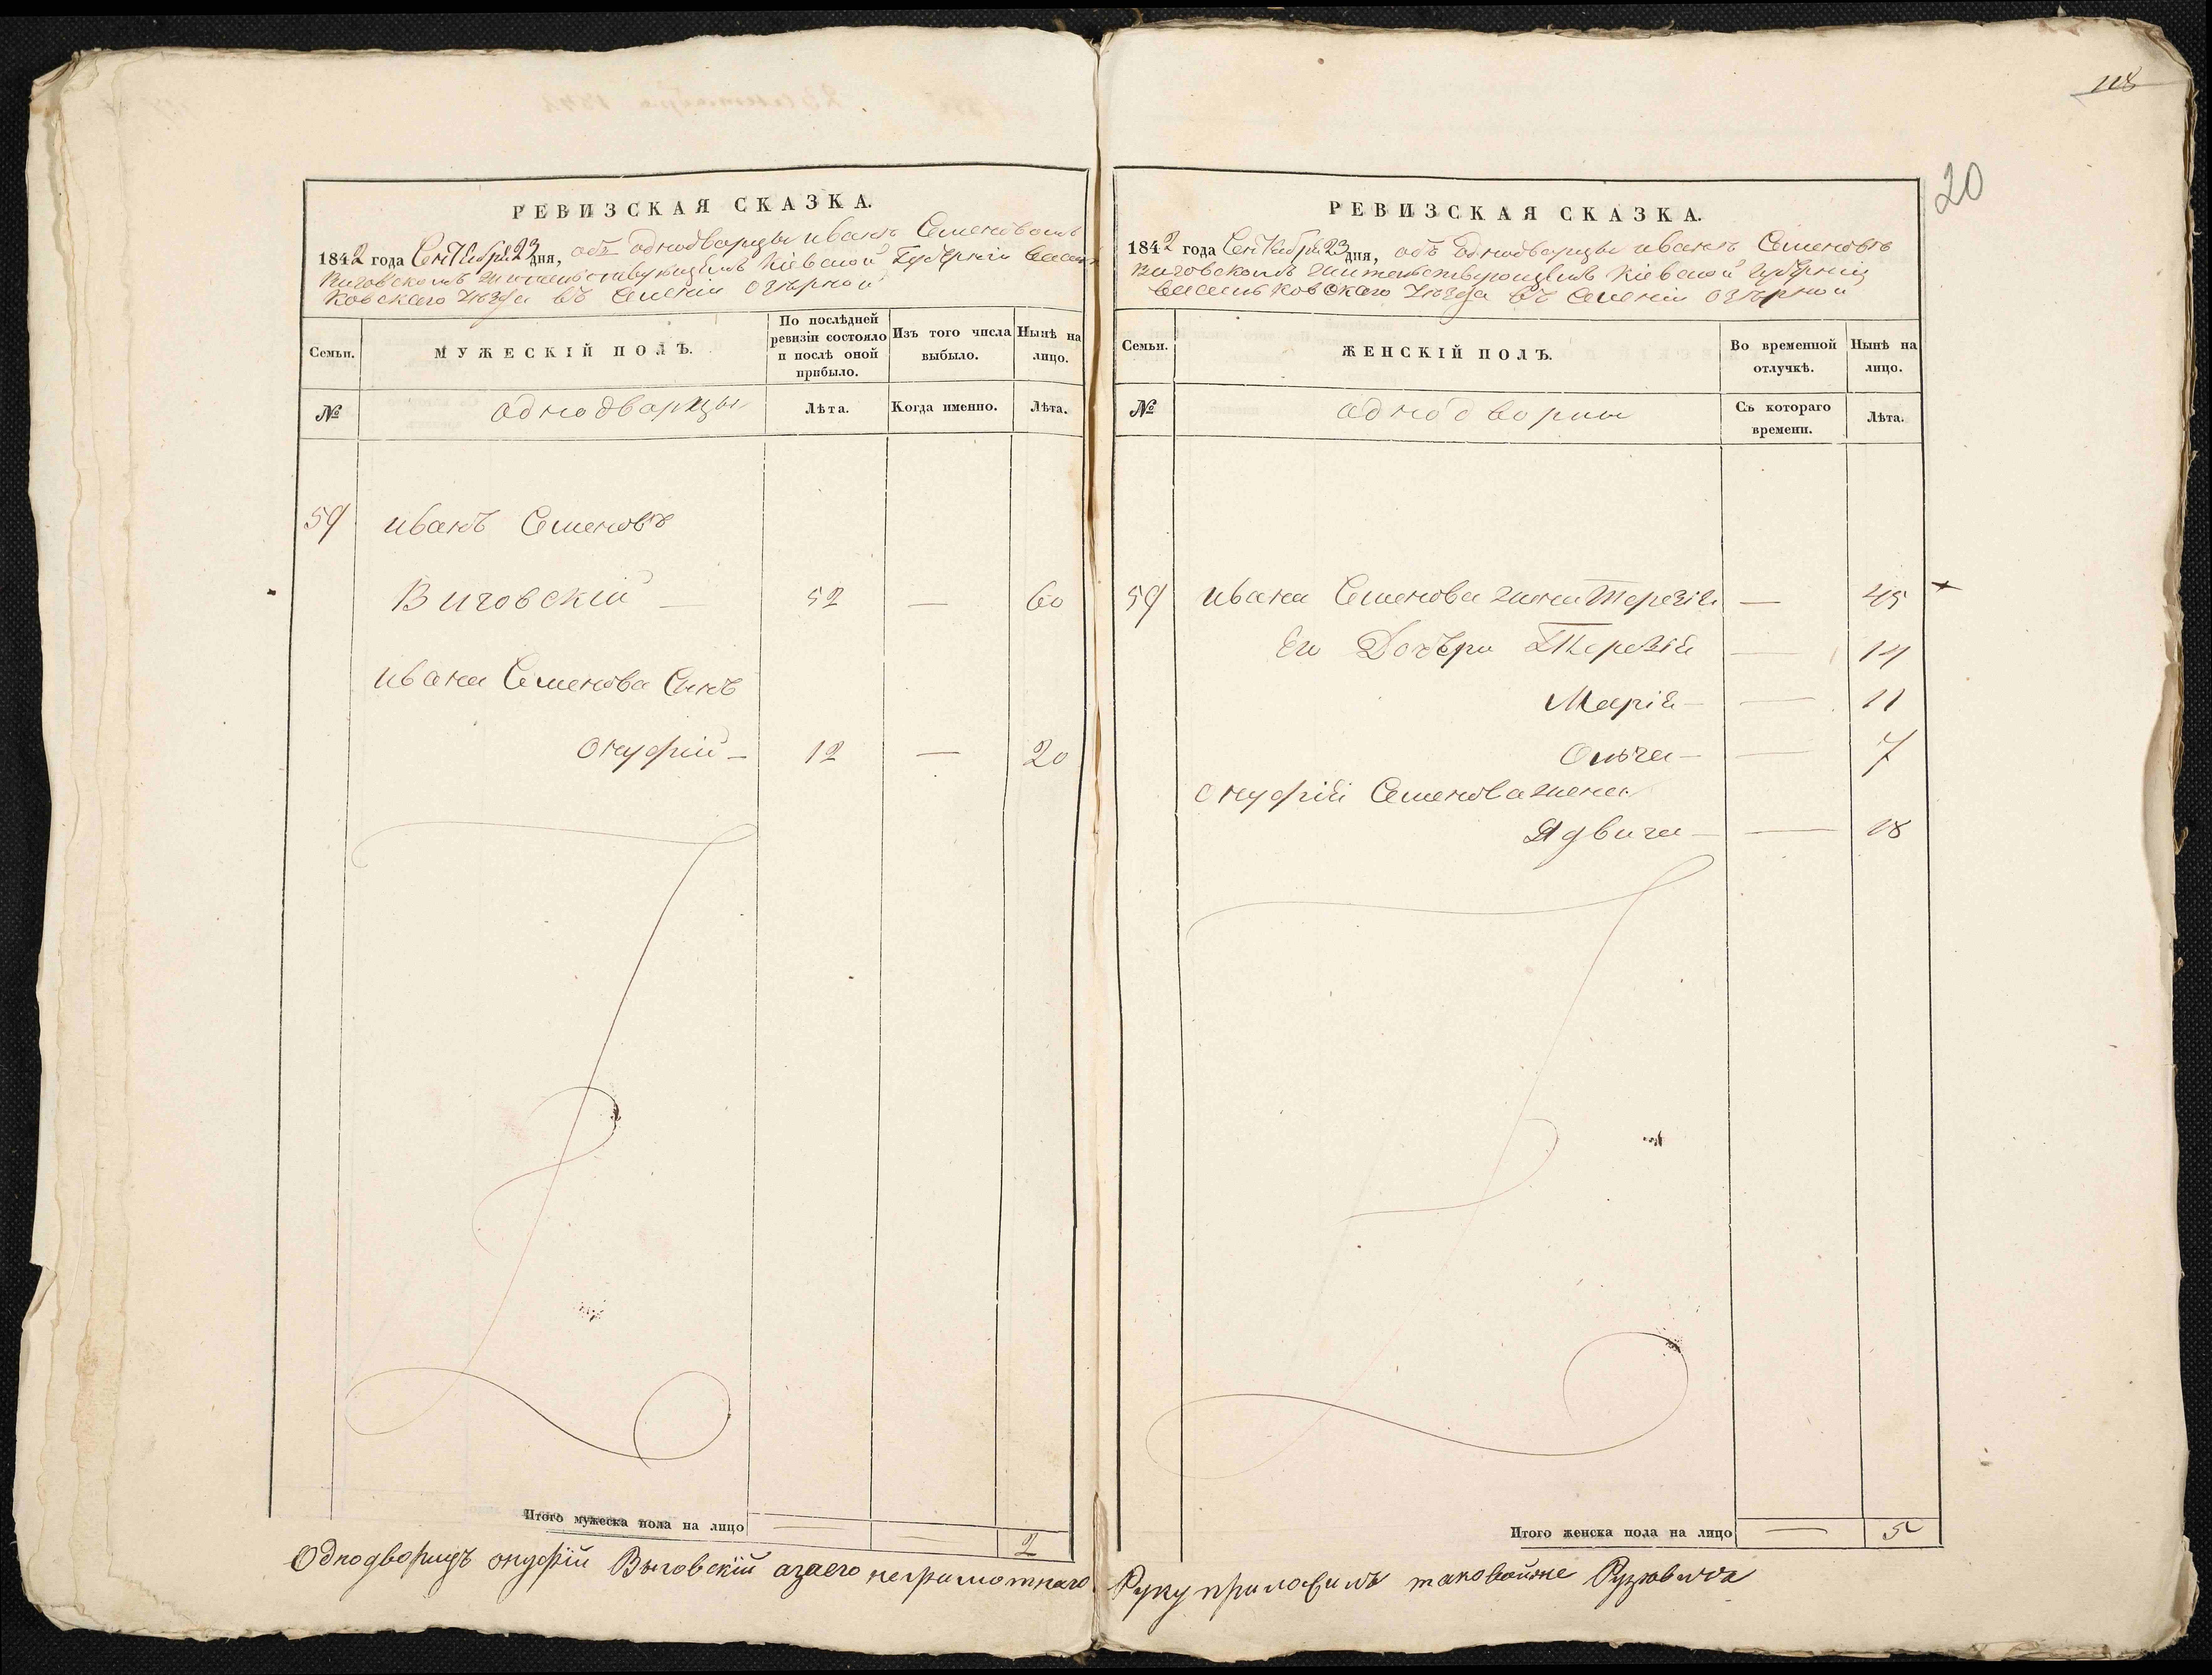 118
20
РЕВИЗСКАЯ СКАЗКА.
1842 года Сентября 23 дня, объ однодварцы иванъ Семеновомъ
Виговскомъ жительствующемъ Кіевской Губерніи Василь
ковскаго уезда въ Селеніи Озѣрной
Семьи.
МУЖЕСКІЙ ПОЛЪ.
По послѣдней ревизіи состояло и послѣ оной прибыло.
Изъ того числа выбыло.
Нынѣ на лицо.
№
однодварцы
Лѣта.
Когда именно.
Лѣта.
59 иванъ Семеновъ
Виговскій — 52 — 60
ивана Семенова Синъ
Онуфрій — 12 — 20
Итого мужеска пола на лицо — — 2
Однодворецъ онуфрій Выговскій азаего неграмотнаго
РЕВИЗСКАЯ СКАЗКА.
1842 года Сентября 23 дня, объ однодварцы иванъ Семеновъ
Виговскомъ жительствующемъ Кіевской губерніи
Васильковского уезда въ Селеніи Озѣрной
Семьи.
ЖЕНСКІЙ ПОЛЪ.
Во временной отлучкѣ.
Нынѣ на лицо.
№
однодворки
Съ котораго времени.
Лѣта.
59 ивана Семенова жена Терезія — 45
Его Дочѣри Терезія — 14
Марія — — 11
Ольга — — 7
Онуфрій Семенова жена
Ядвига — — 18
Итого женска пола на лицо — 5
Руку приложилъ таковойже